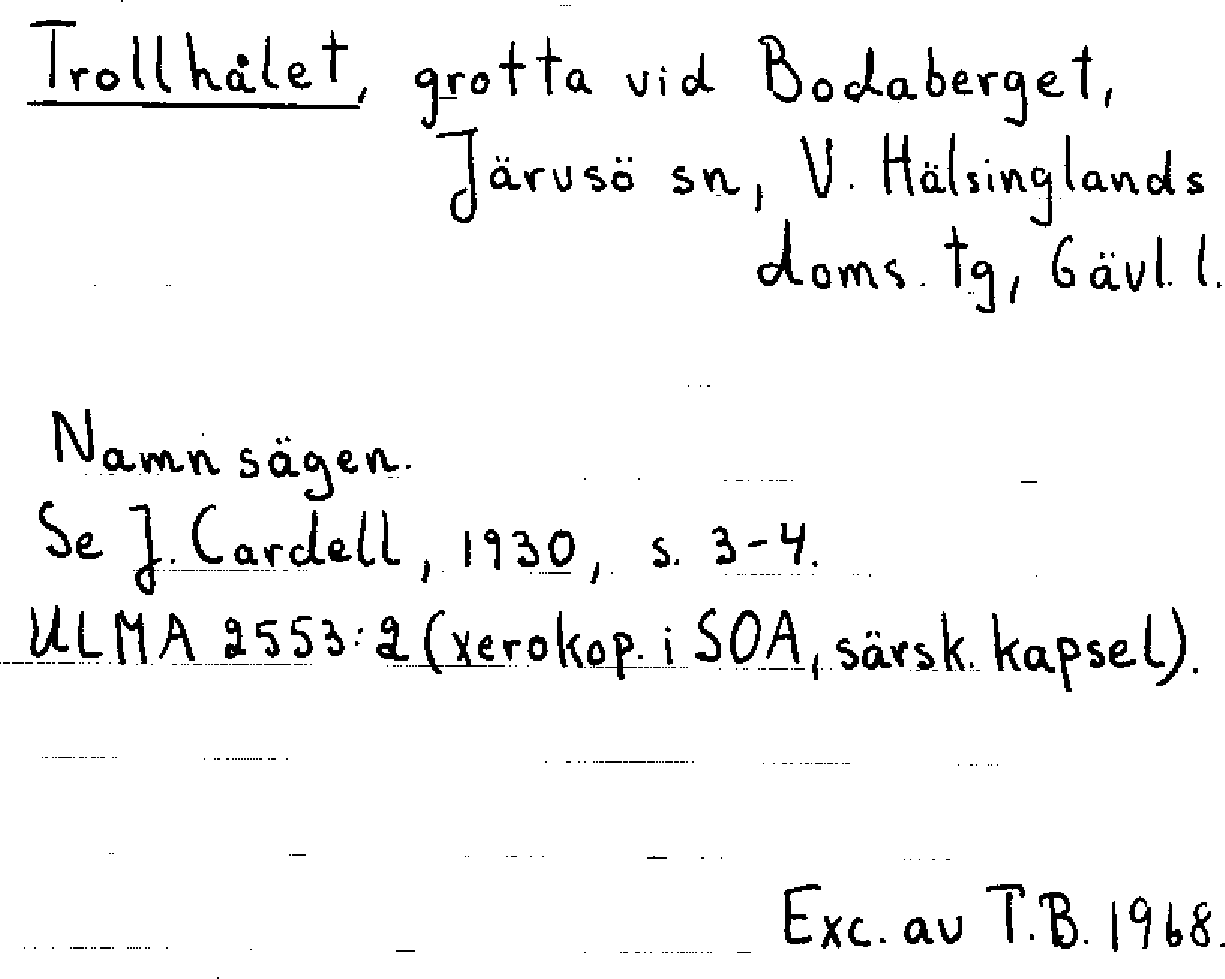 Trollhålet, grotta vid Bodaberget,
Järvsö sn, V. Hälsinglands
doms. tg, Gävl. l.
Namnsägen.
Se J. Cardell, 1930, s. 3-4.
ULMA 2553:2 (xerokop. i SOA, särsk. kapsel).
Exc. av T.B. 1968.